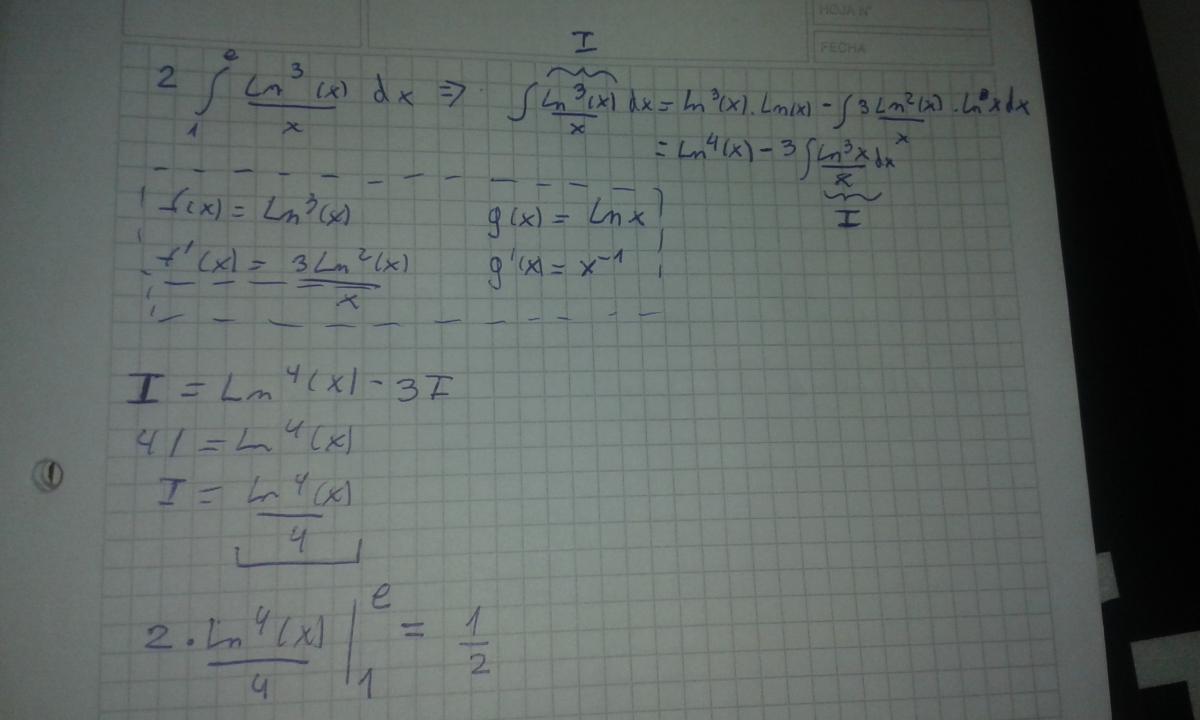 HOJA N°
FECHA
I
2 ∫₁ᵉ Ln³(x)/x dx ⇒ ∫ Ln³(x)/x dx = Ln³(x).Ln(x) - ∫ 3Ln²(x)/x . Ln x dx
= Ln⁴(x) - 3 ∫ Ln³x/x dx
I
f(x) = Ln³(x) g(x) = Ln x
f'(x) = 3Ln²(x)/x g'(x) = x⁻¹
I = Ln⁴(x) - 3I
4I = Ln⁴(x)
I = Ln⁴(x)/4
2 . Ln⁴(x)/4 |₁ᵉ = 1/2